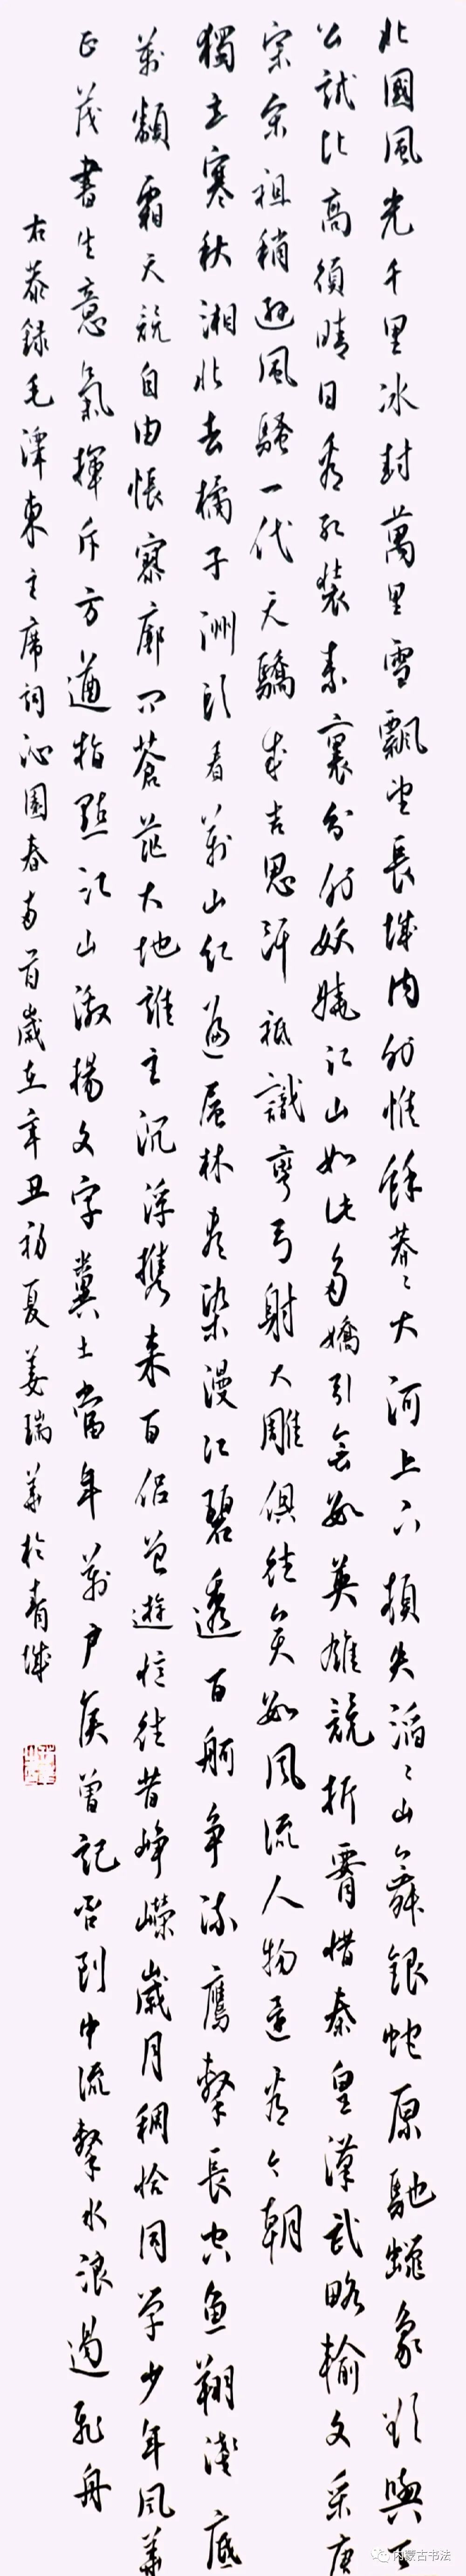 北國風光千里冰封萬里雪飄望長城內外惟餘莽〻大河上下頓失滔〻山舞銀蛇原馳蠟象欲與天
公試比高須晴日看紅裝素裹分外妖嬈江山如此多嬌引無數英雄競折腰惜秦皇漢武略輸文采唐
宗宋祖稍遜風騷一代天驕成吉思汗祗識彎弓射大雕俱往矣數風流人物還看今朝
獨立寒秋湘北去橘子洲頭看萬山紅遍層林盡染漫江碧透百舸爭流鷹擊長空魚翔淺底
萬類霜天競自由悵寥廓問蒼茫大地誰主沉浮攜來百侶曾遊憶往昔崢嶸歲月稠恰同学少年風華
正茂書生意氣揮斥方遒指點江山激揚文字糞土當年萬戶侯曾記否到中流擊水浪遏飛舟
右恭錄毛澤東主席詞沁園春兩首歲在辛丑初夏姜瑞華於青城
内蒙古书法